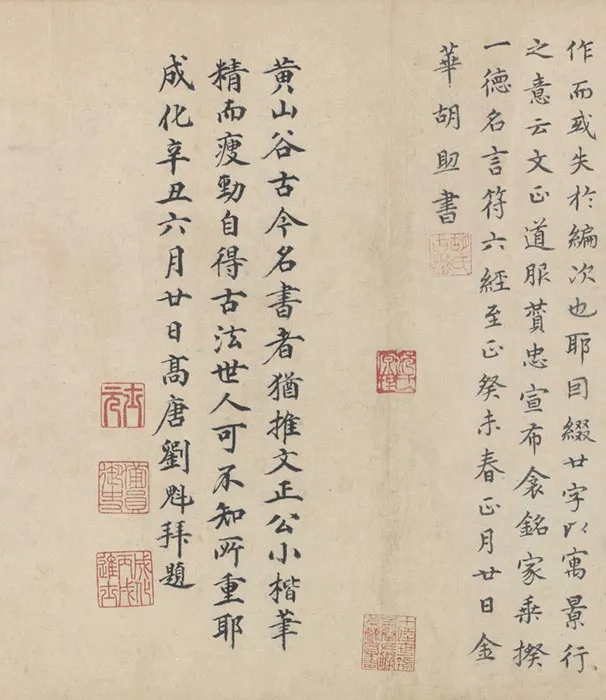 作而或失於編次也耶囙綴廿字以寓景行
之意云文正道服賛忠宣布衾銘家乗揆
一德名言符六經至正癸未春正月廿日金
華胡助書
黄山谷古今名書者猶推文正公小楷筆
精而瘦勁自得古法世人可不知所重耶
成化辛丑六月廿日髙唐劉魁拜題
士元
成化丙戌進士